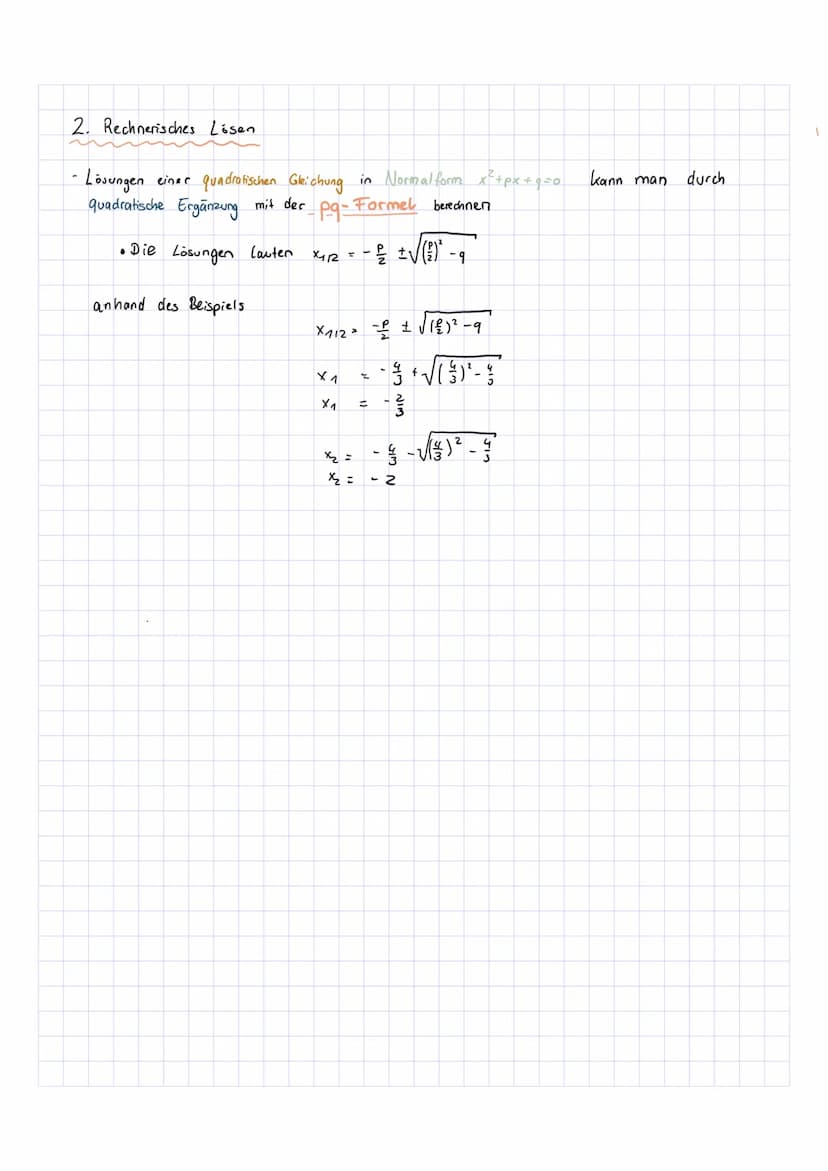 2. Rechnerisches Lösen
- Lösungen einer quadratischen Gleichung in Normalform x²+px+q=0 kann man durch
quadratische Ergänzung mit der pq-Formel berechnen
• Die Lösungen lauten x₁/₂ = -p/2 ±√((p/2)² -q)
anhand des Beispiels
x₁/₂ = -p/2 ± √((p/2)² -q)
x₁ = -4/3 +√((4/3)² - 4/3)
x₁ = -2/3
x₂ = -4/3 -√((4/3)² - 4/3)
x₂ = -2